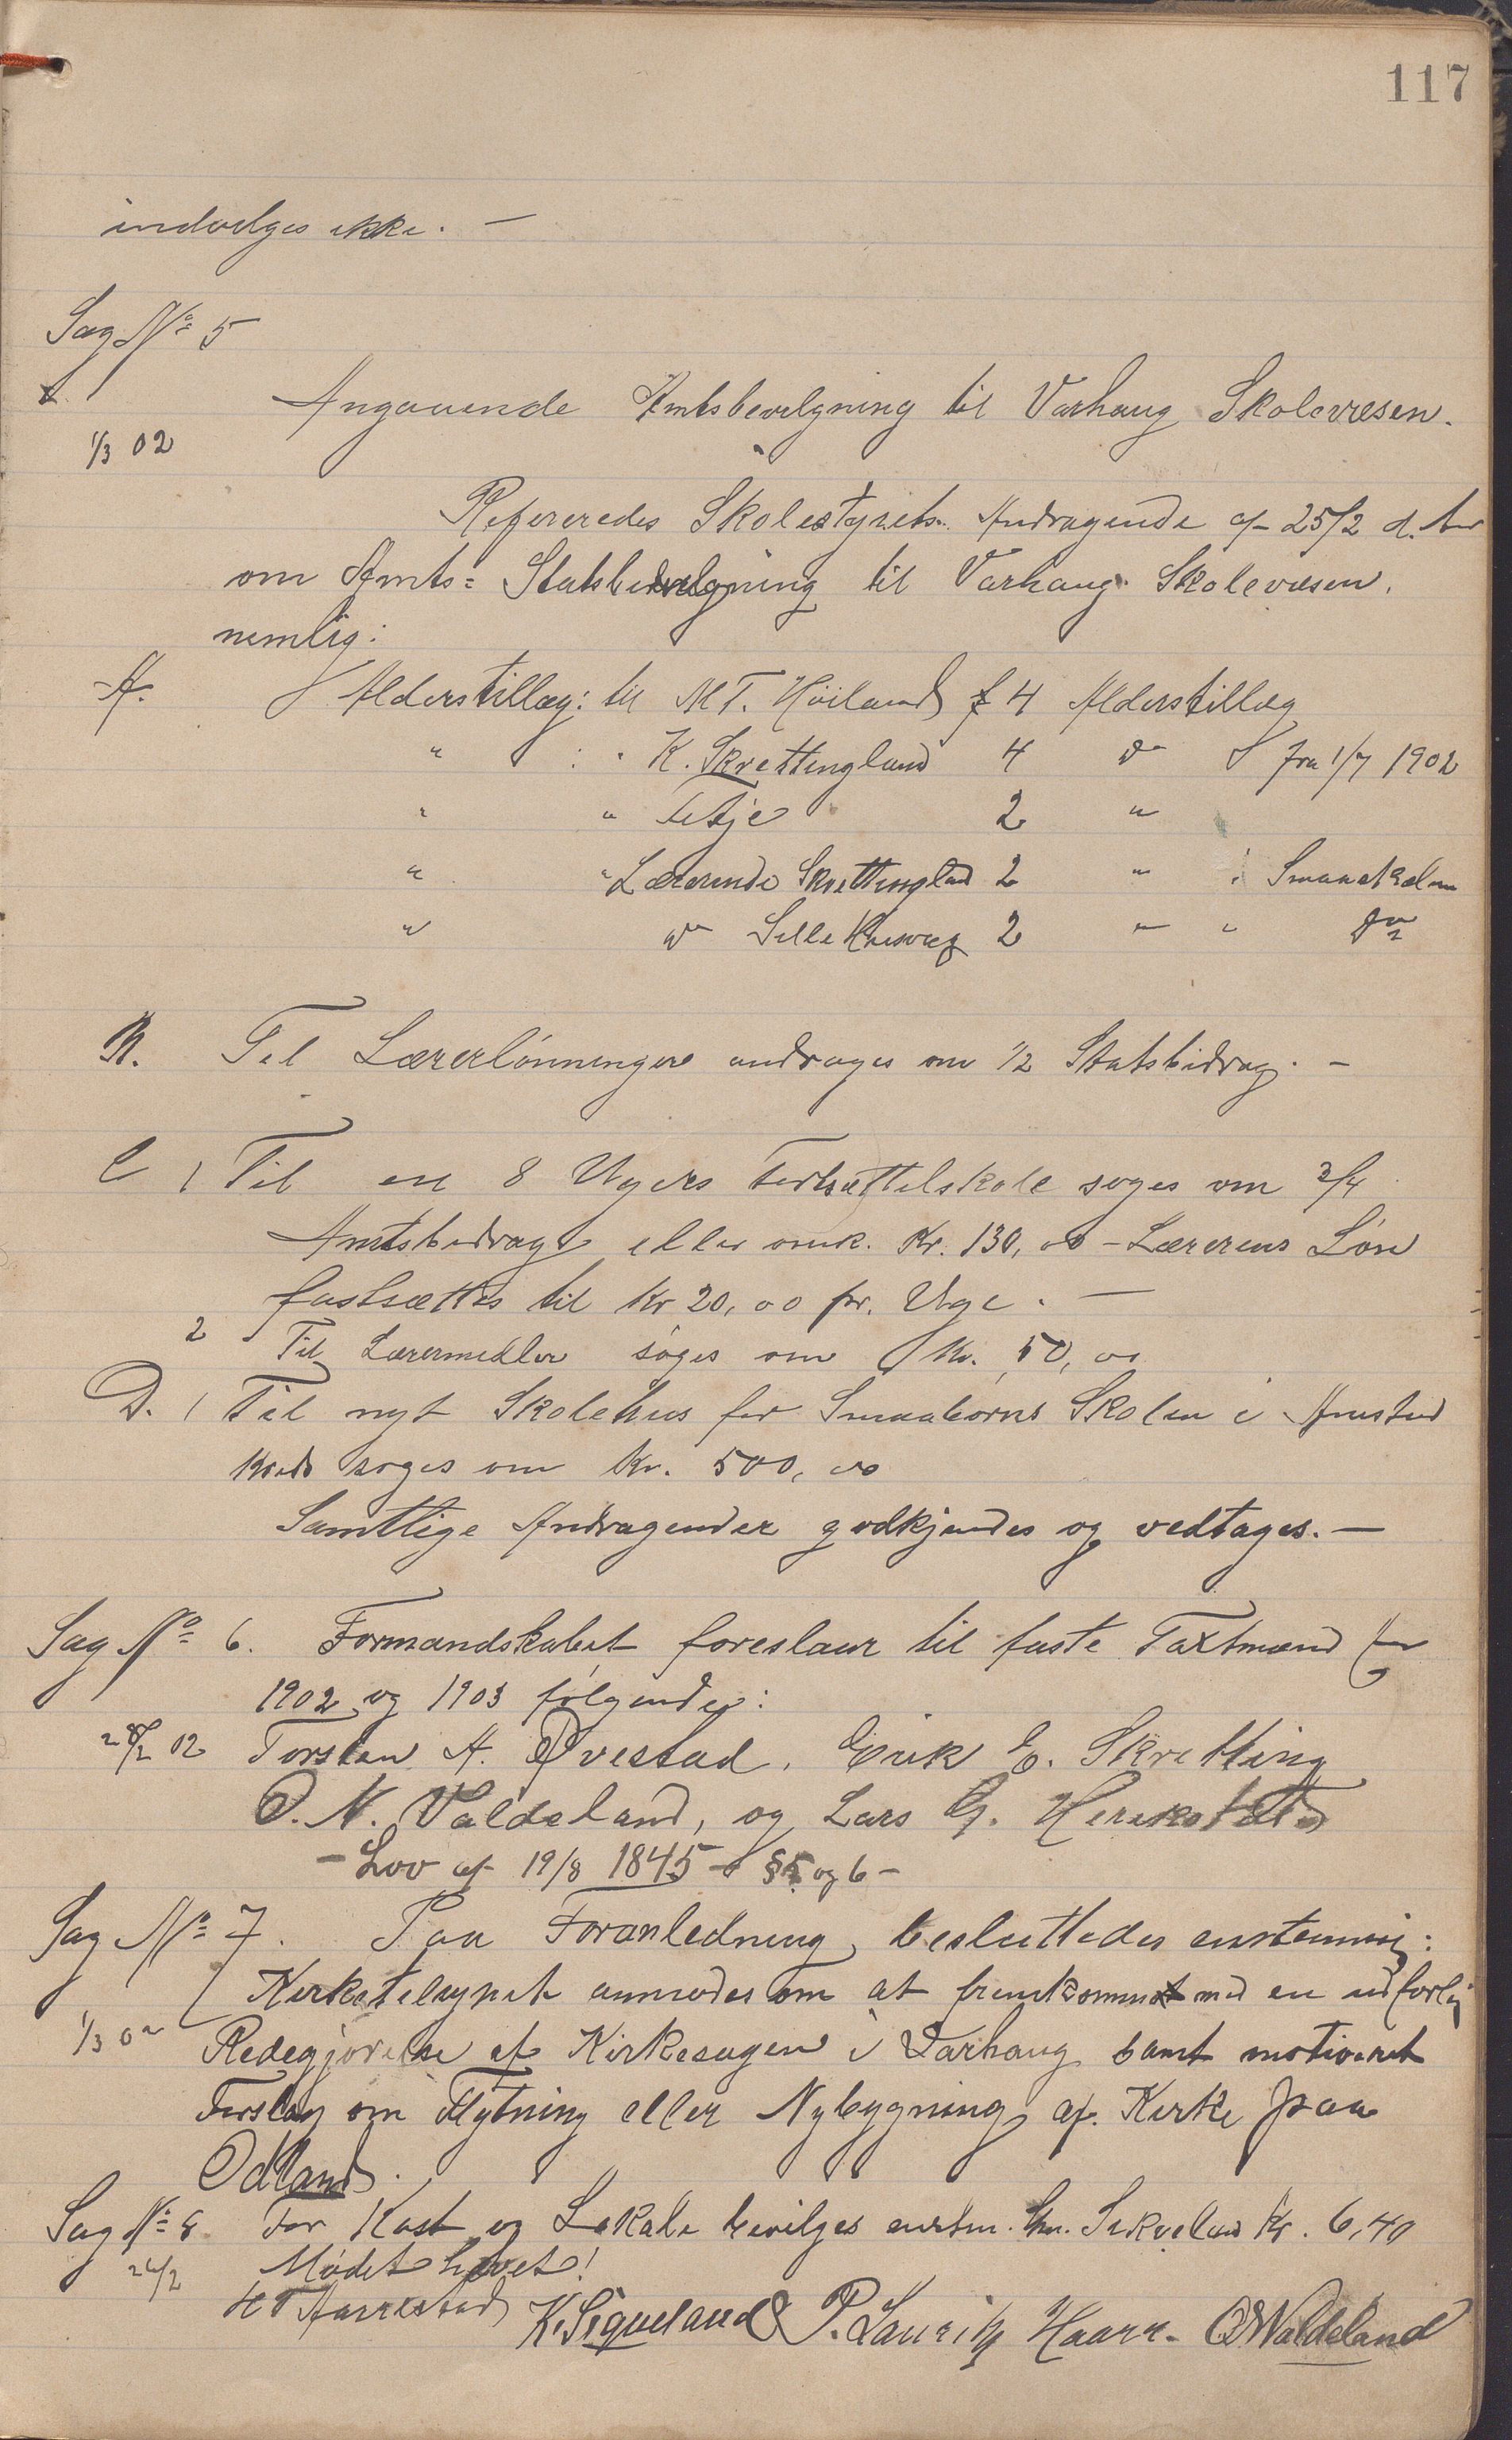 117
indvelges ikke. —
Sag № 5
1/3 02
Angaaende Amtsbevilgning til Varhaug Skolevæsen.
Refereredes Skolestyrets Andragende af 25/2 d.
om Amts= Statsbevilgning til Varhaug Skolevæsen.
nemlig:
A. Alderstillæg: til M T. Høiland 4 Alderstillæg
" : " K. Skrettingland 4 do fra 1/7 1902
" " 2 "
" " Lærerinde Skrettingland 2 " i Smaaskolen
" do 2 " " do
B. Til Lærerlønninger andrages om 1/2 Statsbidrag. —
C 1 Til en 8 Ugers Fortsættelskole søges om 3/4
Amtsbidrag eller omk. Kr. 130,00 - Lærerens Løn
fastsættes til Kr 20,00 pr. Uge. —
2 Til Læremidler søges om Kr. 50,00
D. 1 Til nyt Skolehus for Smaabørns Skolen i
Kreds søges om Kr. 500,00
Samtlige Andragender godkjendes og vedtages. —
Sag № 6. Formandskabet foreslaar til faste Taxtmænd for
1902 og 1903 følgende:
28/2 02 Torsten A. Øvestad, Erik E. Skretting
O. N. Valdeland, og Lars G. Herikstad
- Lov af 19/8 1845 - § 5 og 6 -
Sag № 7. Paa Foranledning besluttedes enstemmig:
Kirketilsynet anmodes om at fremkomme med en udførlig
1/3 02 Redegjørelse af Kirkesagen i Varhaug samt motiveret
Forslag om Flytning eller Nybygning af Kirke paa
Odland.
Sag № 8 For Kost og Lokale bevilges enstm. Kr. 6,40
26/2 Mødet hævet!
H T Aarrestad K. Siqveland P. Lauritz Haarr. O N Valdeland